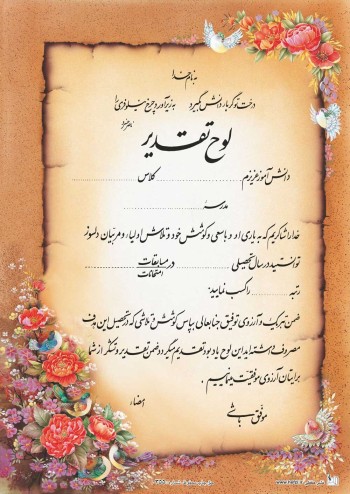 به نام خدا
درخت تو گر بار دانش بگیرد به زیر آوری چرخ نیلوفری را
ناصر خسرو
لوح تقدیر
دانش آموز عزیزم ........ کلاس ........
مدرسه ........
خدا را شاکریم که به یاری او و با سعی و کوشش خود و تلاش اولیاء و مربیان دلسوز
توانستید در سال تحصیلی ........ در مسابقات
امتحانات
رتبه ........ را کسب نمایید.
ضمن تبریک و آرزوی توفیق جنابعالی بپاس کوشش و تلاشی که در تحصیل این هدف
مصروف داشته‌اید این لوح یادبود تقدیم میگردد و ضمن تقدیر و تشکر از شما
برایتان آرزوی موفقیت مینماییم.
امضاء
موفق باشی